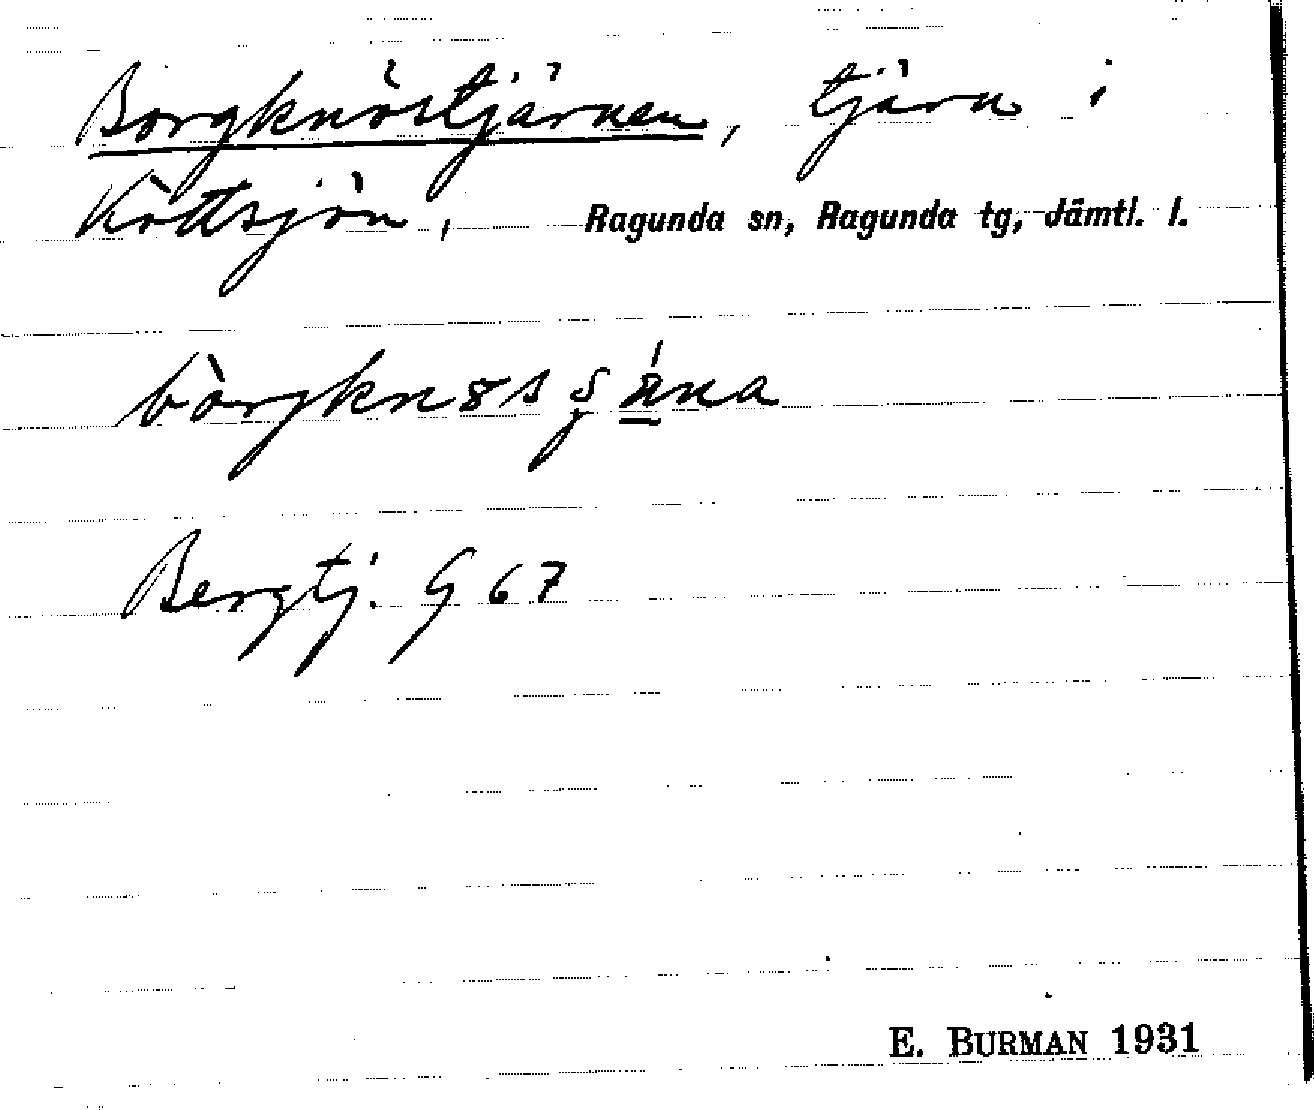 Borgknöstjärnen, tjärn i
Köttsjön, Ragunda sn, Ragunda tg, Jämtl. l.
Bergtj. G 67
E. BURMAN 1931